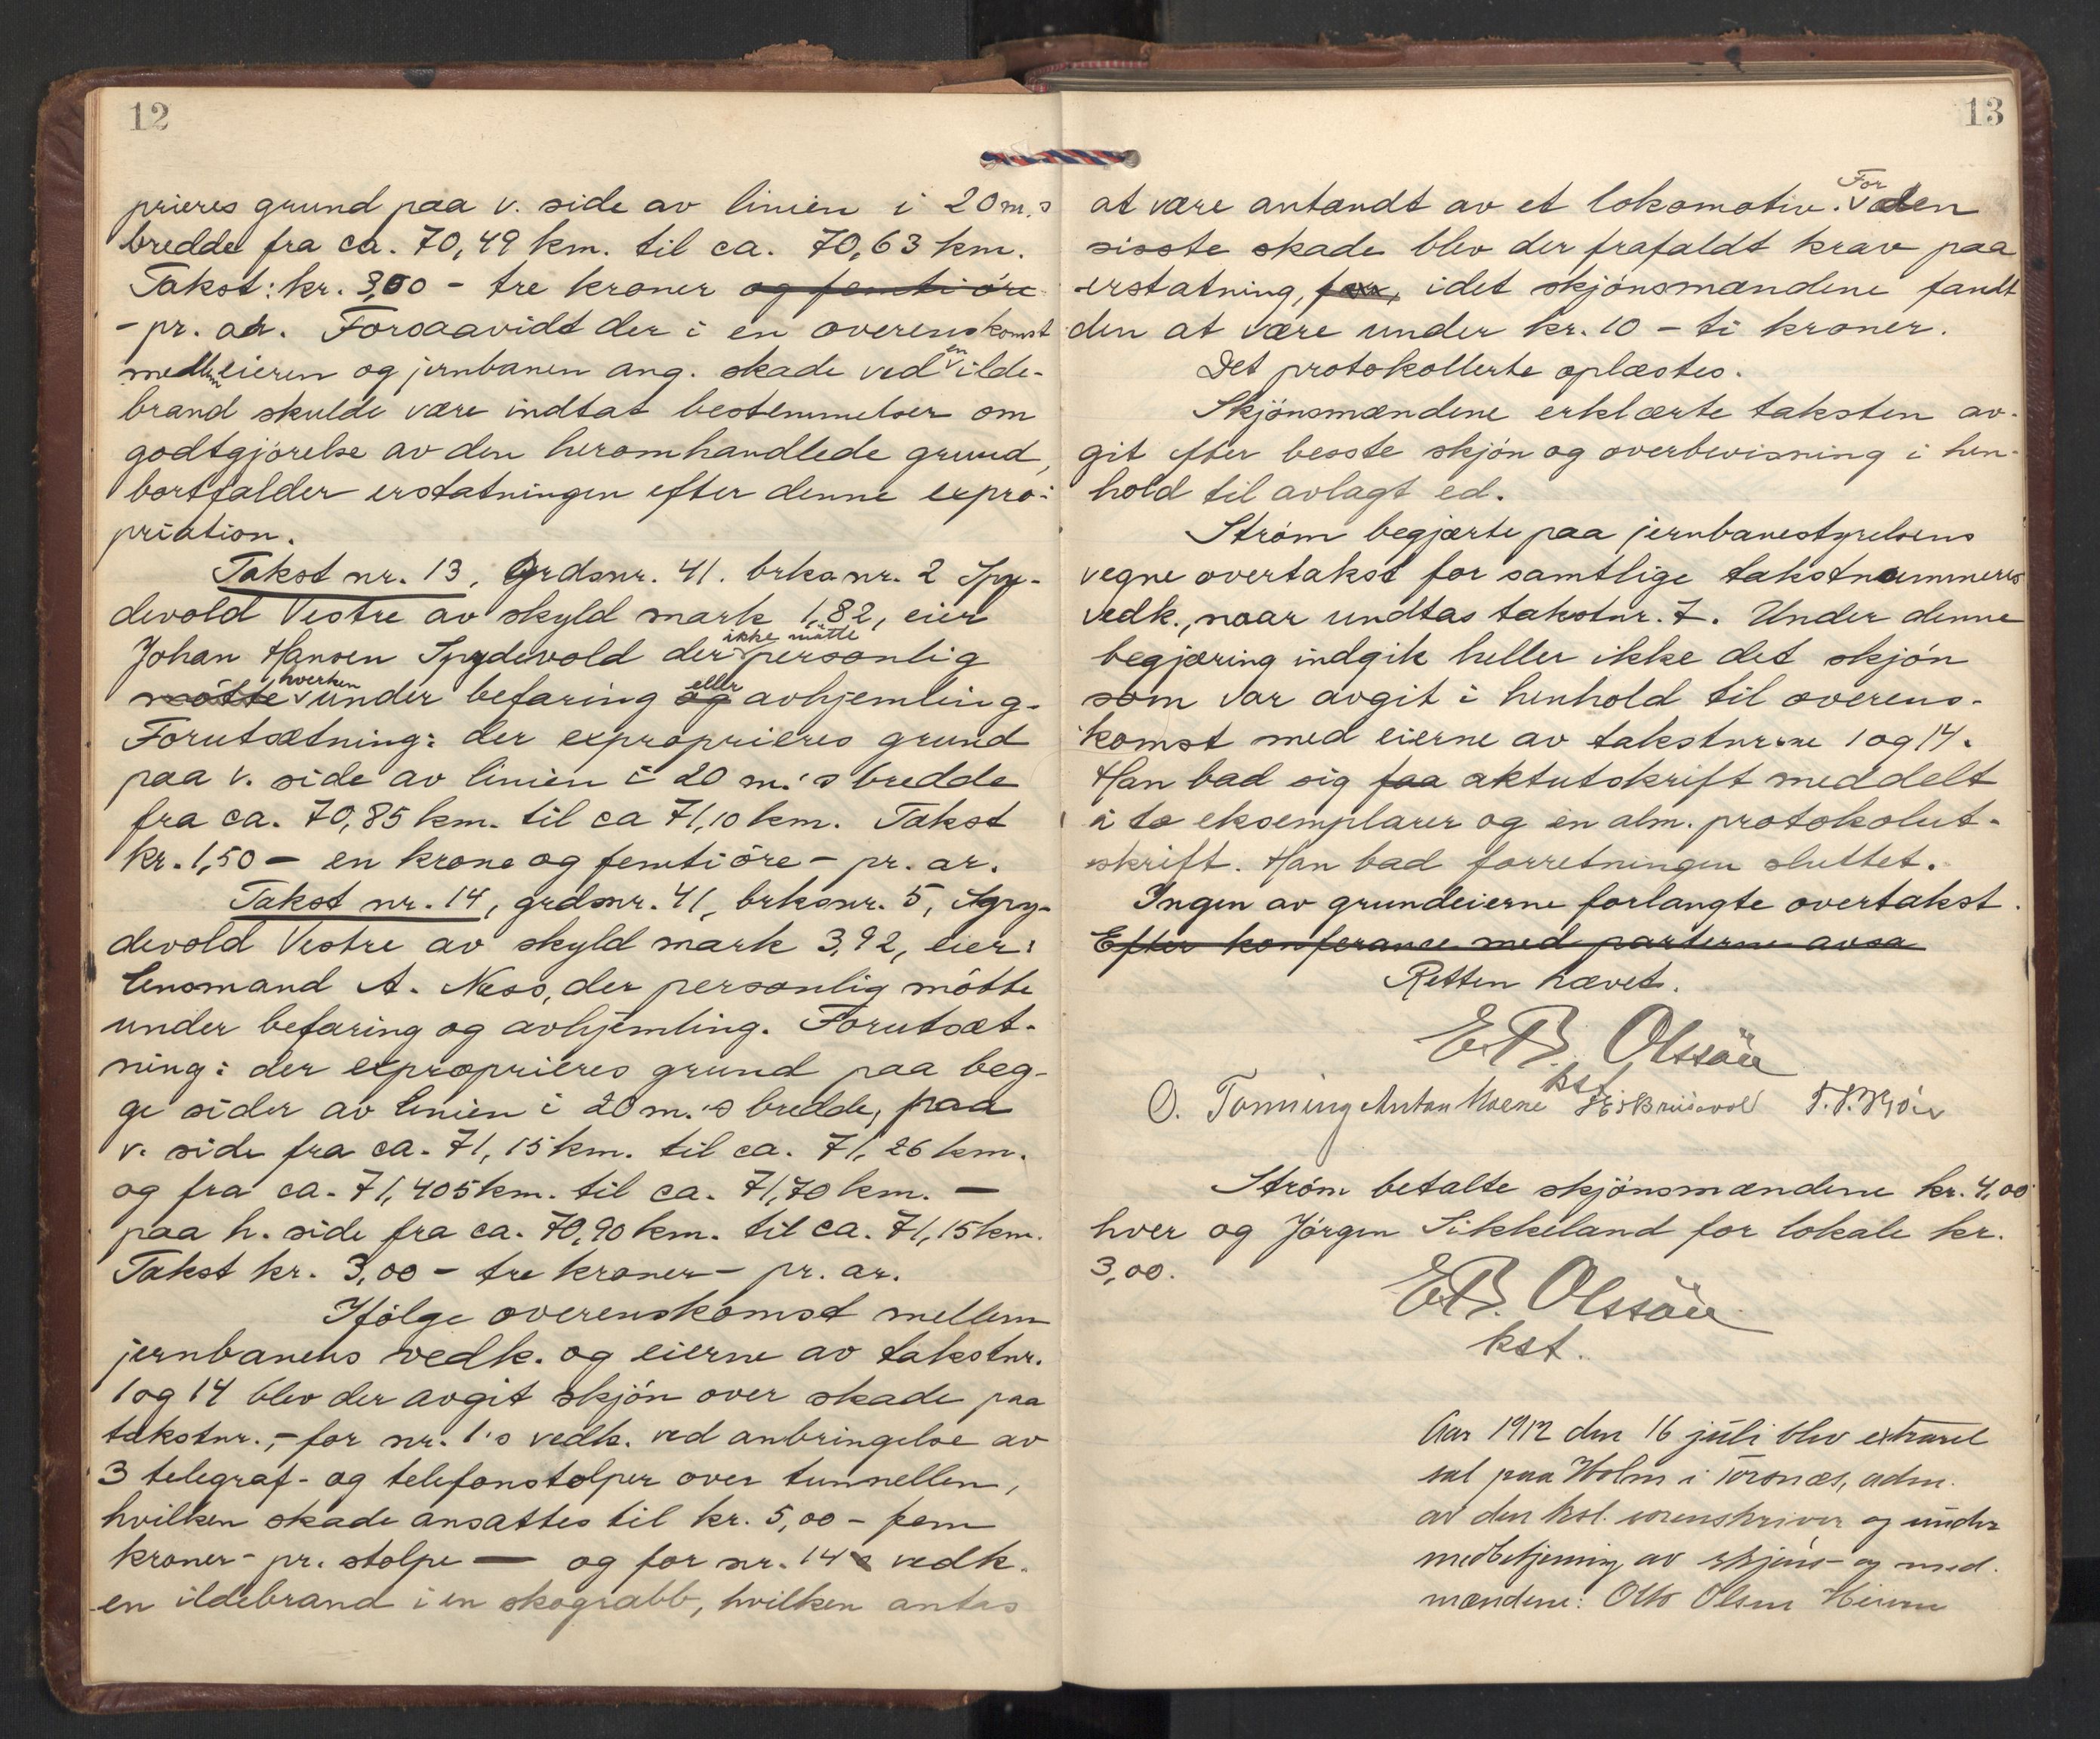 12
prieres grund paa v. side av linien i 20 m.'s
bredde fra ca. 70,49 km. til ca. 70,63 km.
Takst: kr. 3,00 - tre kroner og femti öre
- pr. ar. Forsaavidt der i en overenskomst
mellem eieren og jernbanen ang. skade ved en ilde-
brand skulde være indtat bestemmelser om
godtgjörelse av den heromhandlede grund,
bortfalder erstatningen efter denne expro-
priation.
Takst nr. 13, Grdsnr. 41. brksnr. 2 Spy-
devold Vestre av skyld mark 1,82, eier
Johan Hansen Spydevold der ikke mötte personlig
mötte hverken under befaring og eller avhjemling.
Forutsætning: der exproprieres grund
paa v. side av linien i 20 m.'s bredde
fra ca. 70,85 km. til ca 71,10 km. Takst
kr. 1,50 - en krone og femti öre - pr. ar.
Takst nr. 14, grdsnr. 41, brksnr. 5, Spy-
devold Vestre av skyld mark 3,92, eier:
lensmand A. Ness, der personlig mötte
under befaring og avhjemling. Forutsæt-
ning: der exproprieres grund paa beg-
ge sider av linien i 20 m.'s bredde, paa
v. side fra ca. 71,15 km. til ca. 71,26 km.
og fra ca. 71,405 km. til ca. 71,70 km. -
paa h. side fra ca. 70,90 km. til ca. 71,15 km.
Takst kr. 3,00 - tre kroner - pr. ar.
Ifölge overenskomst mellem
jernbanens vedk. og eierne av takstnr.
1 og 14 blev der avgit skjön over skade paa
takstnr., - for nr. 1's vedk. ved anbringelse av
3 telegraf- og telefonstolper over tunnellen,
hvilken skade ansattes til kr. 5,00 - fem
kroner - pr. stolpe - og for nr. 14s vedk.
en ildebrand i en skograbb, hvilken antas
13
at være antændt av et lokomotiv. For den
sisste skade blev der frafaldt krav paa
erstatning, idet skjönsmændene fandt
den at være under kr. 10 - ti kroner.
Det protokollerte oplæstes.
Skjönsmændene erklærte taksten av-
git efter besste skjön og overbevisning i hen-
hold til avlagt ed.
Ström begjærte paa jernbanestyrelsens
vegne overtakst for samtlige takstnummeres
vedk., naar undtas takstnr. 7. Under denne
begjæring indgik heller ikke det skjön
som var avgit i henhold til overens-
komst med eierne av takstnrne 1 og 14.
Han bad sig faa aktutskrift meddelt
i to eksemplarer og en alm. protokolut-
skrift. Han bad forretningen sluttet.
Ingen av grundeierne forlangte overtakst.
Efter konferanse med parterne avsa
Retten hævet.
E.B. Olssön
kst.
O. Tonning Anton
Ström betalte skjönsmændene kr. 4,00
hver og Jörgen Sikkeland for lokale kr.
3,00.
E.B. Olssön
kst.
Aar 1912 den 16 juli blev extraret
sat paa Holm i Torsnæs, adm.
av den kst. sorenskriver og under
medbetjening av skjöns- og med.
mændene: Otto Olsen